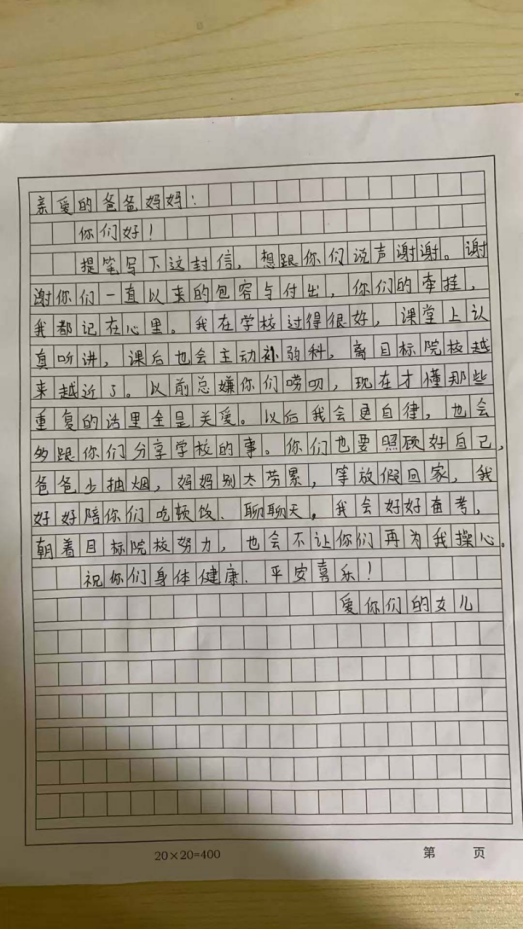 亲爱的爸爸妈妈：
你们好！
提笔写下这封信，想跟你们说声谢谢。谢
谢你们一直以来的包容与付出，你们的牵挂，
我都记在心里。我在学校过得很好，课堂上认
真听讲，课后也会主动补弱科，离目标院校越
来越近了。以前总嫌你们唠叨，现在才懂那些
重复的话里全是关爱。以后我会更自律，也会
多跟你们分享学校的事。你们也要照顾好自己，
爸爸少抽烟，妈妈别太劳累，等放假回家，我
好好陪你们吃顿饭、聊聊天。我会好好奋考，
朝着目标院校努力，也会不让你们再为我操心。
祝你们身体健康、平安喜乐！
爱你们的女儿
20×20=400
第 页